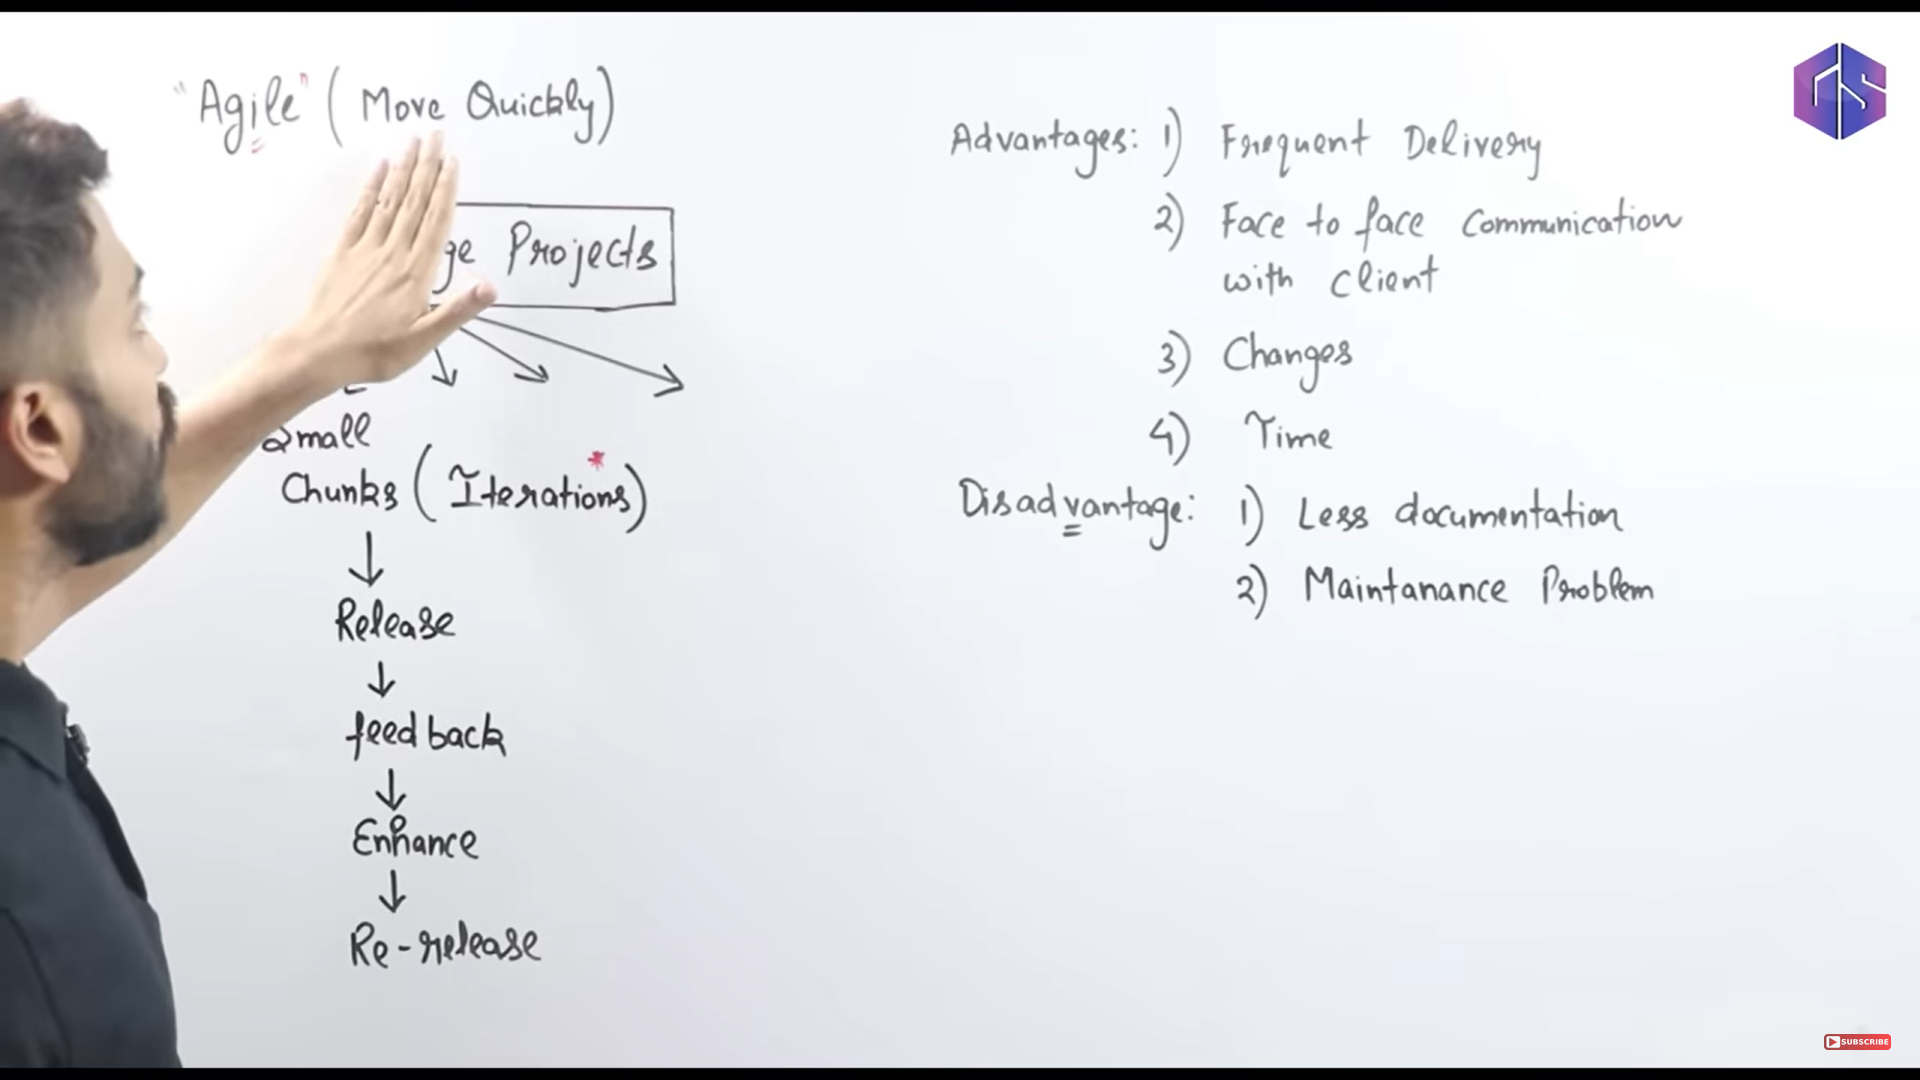 "Agile" (Move Quickly)
Projects
Small
Chunks (Iterations)*
Release
feedback
Enhance
Re-release
Advantages: 1) Frequent Delivery
2) Face to face Communication
with client
3) Changes
4) Time
Disadvantage: 1) Less documentation
2) Maintanance Problem
SUBSCRIBE